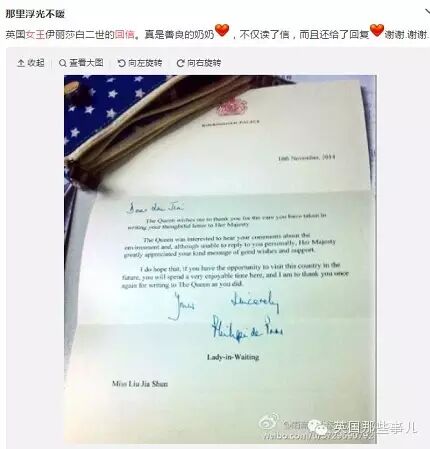 那里浮光不暖
英国女王伊丽莎白二世的回信。真是善良的奶奶❤，不仅读了信，而且还给了回复❤谢谢.谢谢.
收起 查看大图 向左旋转 向右旋转
BUCKINGHAM PALACE
18th November, 2014
Dear Liu Jia
The Queen wishes me to thank you for the care you have taken in
writing your thoughtful letter to Her Majesty
The Queen was interested to hear your comments about the
environment and, although unable to reply to you personally, Her Majesty
greatly appreciated your kind message of good wishes and support.
I do hope that, if you have the opportunity to visit this country in the
future, you will spend a very enjoyable time here, and I am to thank you once
again for writing to The Queen as you did.
Yours Sincerely
Lady-in-Waiting
Miss Liu Jia Shun
英国那些事儿